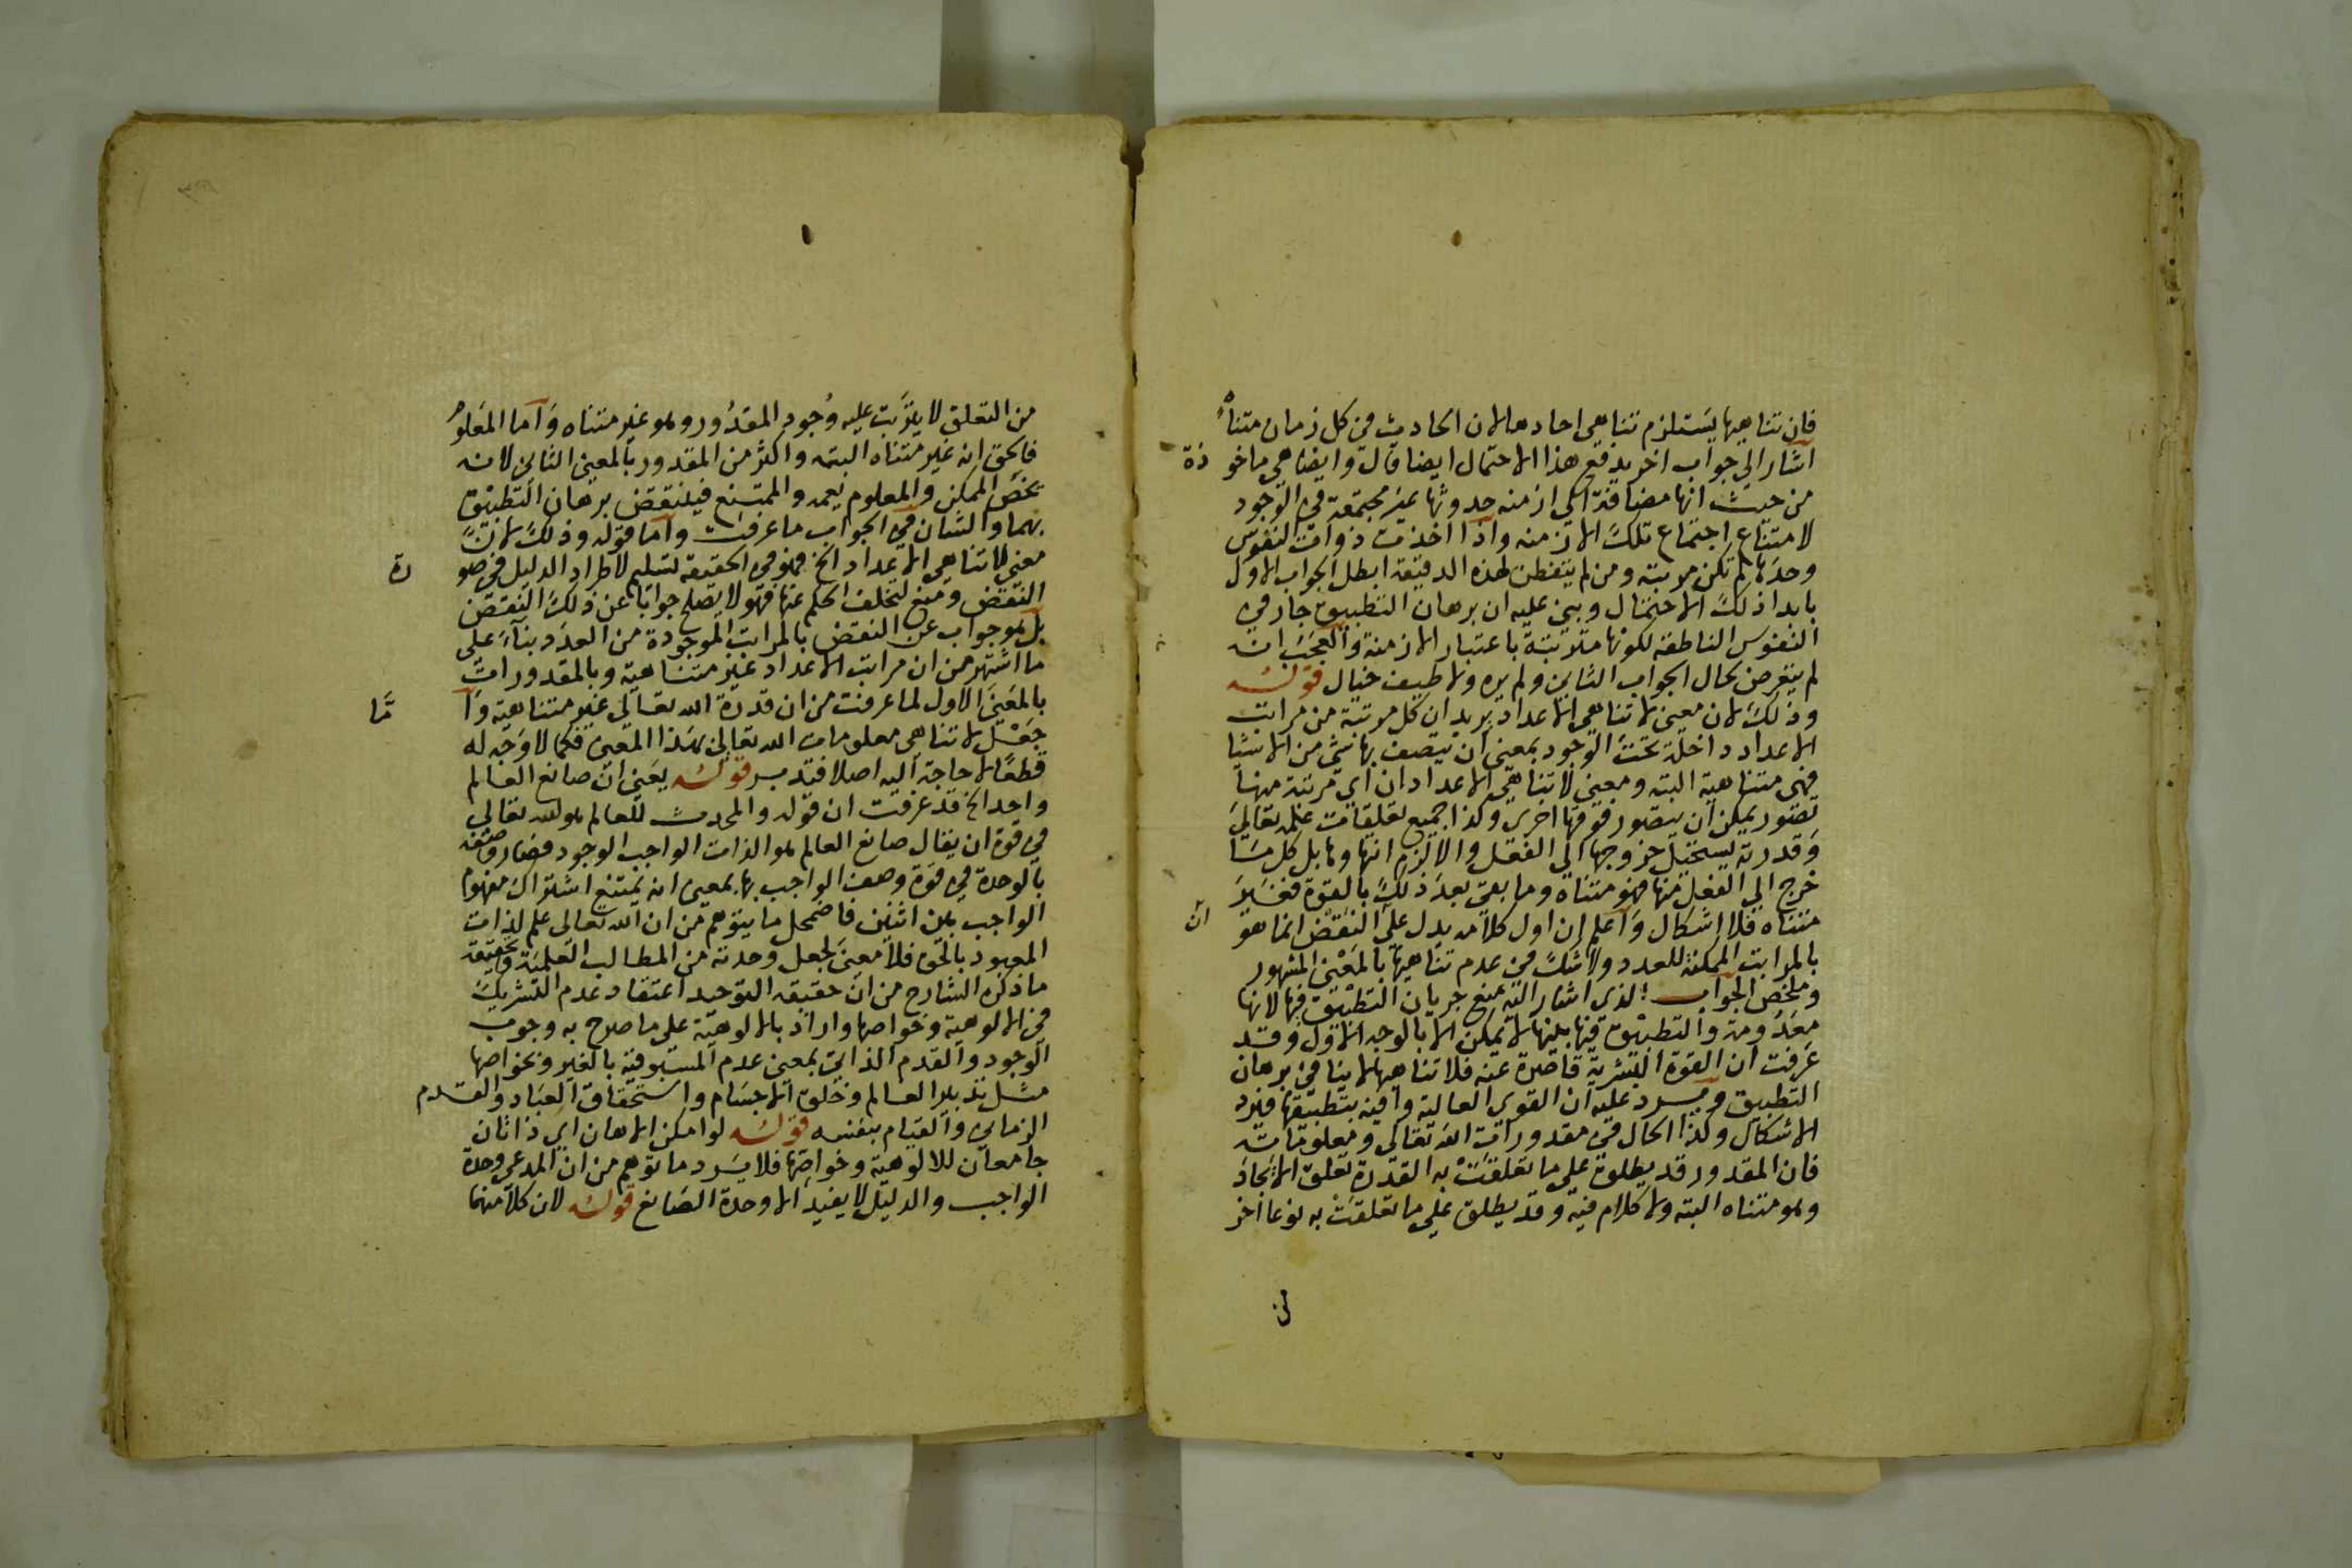 فان تناهيها يستلزم تناهي احادها لان الحادث في كل زمان متناه
اشار الي جواب اخر يدفع هذا الاحتمال ايضا قال وايضا هي ماخو ذة
من حيث انها مضافة الي ازمنه حدوثها غير مجتمعة في الوجود
لامتناع اجتماع تلك الازمنه واذا اخذت ذوات النفوس
وحدها لم تكن مرتبة ومن لم يتفطن لهذه الدقيقة ابطل الجواب الاول
بابداء ذلك الاحتمال وبني عليه ان برهان التطبيق جار في
النفوس الناطقه لكونها مترتبة باعتبار الازمنة والعجب انه
لم يتعرض بحال الجواب الثاني ولم يره ولا طيف خيال قوله
وذلك لان معني لا تناهي الاعداد يريد ان كل مرتبة من مراتب
الاعداد داخلة تحت الوجود بمعني ان يتصف بها شئ من الاشيا
فهي متناهية البته ومعني لا تناهي الاعداد ان اي مرتبة منها
تصور يمكن ان يتصور فوقها اخري وكذا جميع تعلقات علمه تعالي
وقدرته يستحيل خروجها الي الفعل والا لزم انتهاوها بل كل ما
خرج الي الفعل منها فهو متناه وما بقي بعد ذلك بالقوة فغير
متناه فلا اشكال واعلم ان اول كلامه يدل علي ان النقض انما هو
بالمراتب الممكنة للعدد ولا شك في عدم تناهيها بالمعني المشهور
وملخص الجواب الذي اشار اليه منع جريان التطبيق فيها لانها
معدومة والتطبيق فيها بينها لا يمكن الا بالوجه الاول وقد
عرفت ان القوة البشرية قاصرة عنه فلا تناهيها لا ينافي برهان
التطبيق ويرد عليه ان القوي العالية وافية بتطبيقها فيرد
الاشكال وكذا الحال في مقدورات الله تعالي ومعلوماته
فان المقدور قد يطلق علي ما تعلقت به القدرة تعلق الايجاد
وهو متناه البته ولا كلام فيه وقد يطلق علي ما تعلقت به نوعا اخر
من
من التعلق لا يترتب عليه وجود المقدور وهو غير متناه واما المعلوم
فالحق انه غير متناه البته واكثر من المقدور بالمعني الثاني لانه
يخص الممكن والمعلوم يعمه والممتنع فينتقض برهان التطبيق
بهما والشان في الجواب ما عرفت واما قوله وذلك لان
معني لا تناهي الاعداد الخ فهو في الحقيقة تسليم لاطراد الدليل في صو رة
النقض ومنع لتخلف الحكم عنها فهو لا يصلح جوابا عن ذلك النقض
بل هو جواب عن النقض بالمراتب الموجودة من العدد بناء علي
ما اشتهر من ان مراتب الاعداد غير متناهية وبالمقدورات
بالمعني الاول لما عرفت من ان قدرة الله تعالي غير متناهية وا مّا
جعل لا تناهي معلومات الله تعالي بهذا المعني فكما لا وجه له
قطعا لا حاجة اليه اصلا فتدبر قوله يعني ان صانع العالم
واحد الخ قد عرفت ان قوله والمحدث للعالم هو الله تعالي
في قوة ان يقال صانع العالم هو الذات الواجب الوجود فصار وصفه
بالوحدة في قوة وصف الواجب بها بمعني انه يمتنع اشتراك مفهوم
الواجب بين اثنين فاضمحل ما يتوهم من ان الله تعالي علم لذات
المعهود بالحق فلا معني لجعل وحدته من المطالب العلمية وحقيقة
ما ذكره الشارح من ان حقيقه التوحيد اعتقاد عدم الشريك
في الالوهية وخواصها واراد بالالوهية علي ما صرح به وجوب
الوجود والقدم الذاتي بمعني عدم المسبوقية بالغير وبخواصها
مثل تدبير العالم وخلق الاجسام واستحقاق العباد والقدم
الزماني والقيام بنفسه قوله لو امكن الاهان اي ذاتان
جامعان للالوهية وخواصها فلا يرد ما توهم من ان المدعي وحدة
الواجب والدليل لا يفيد الا وحدة الصانع قوله لان كلا منهما